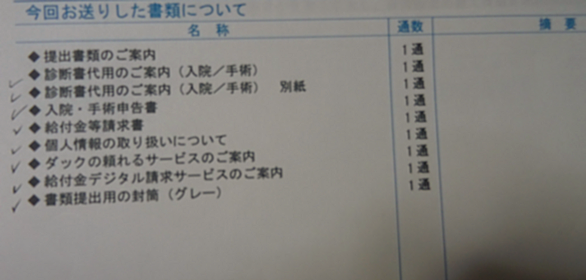 今回お送りした書類について
名 称 通数 摘 要
◆提出書類のご案内 1通
◆診断書代用のご案内(入院/手術) 1通
◆診断書代用のご案内(入院/手術) 別紙 1通
◆入院・手術申告書 1通
◆給付金等請求書 1通
◆個人情報の取り扱いについて 1通
◆ダックの頼れるサービスのご案内 1通
◆給付金デジタル請求サービスのご案内 1通
◆書類提出用の封筒(グレー) 1通